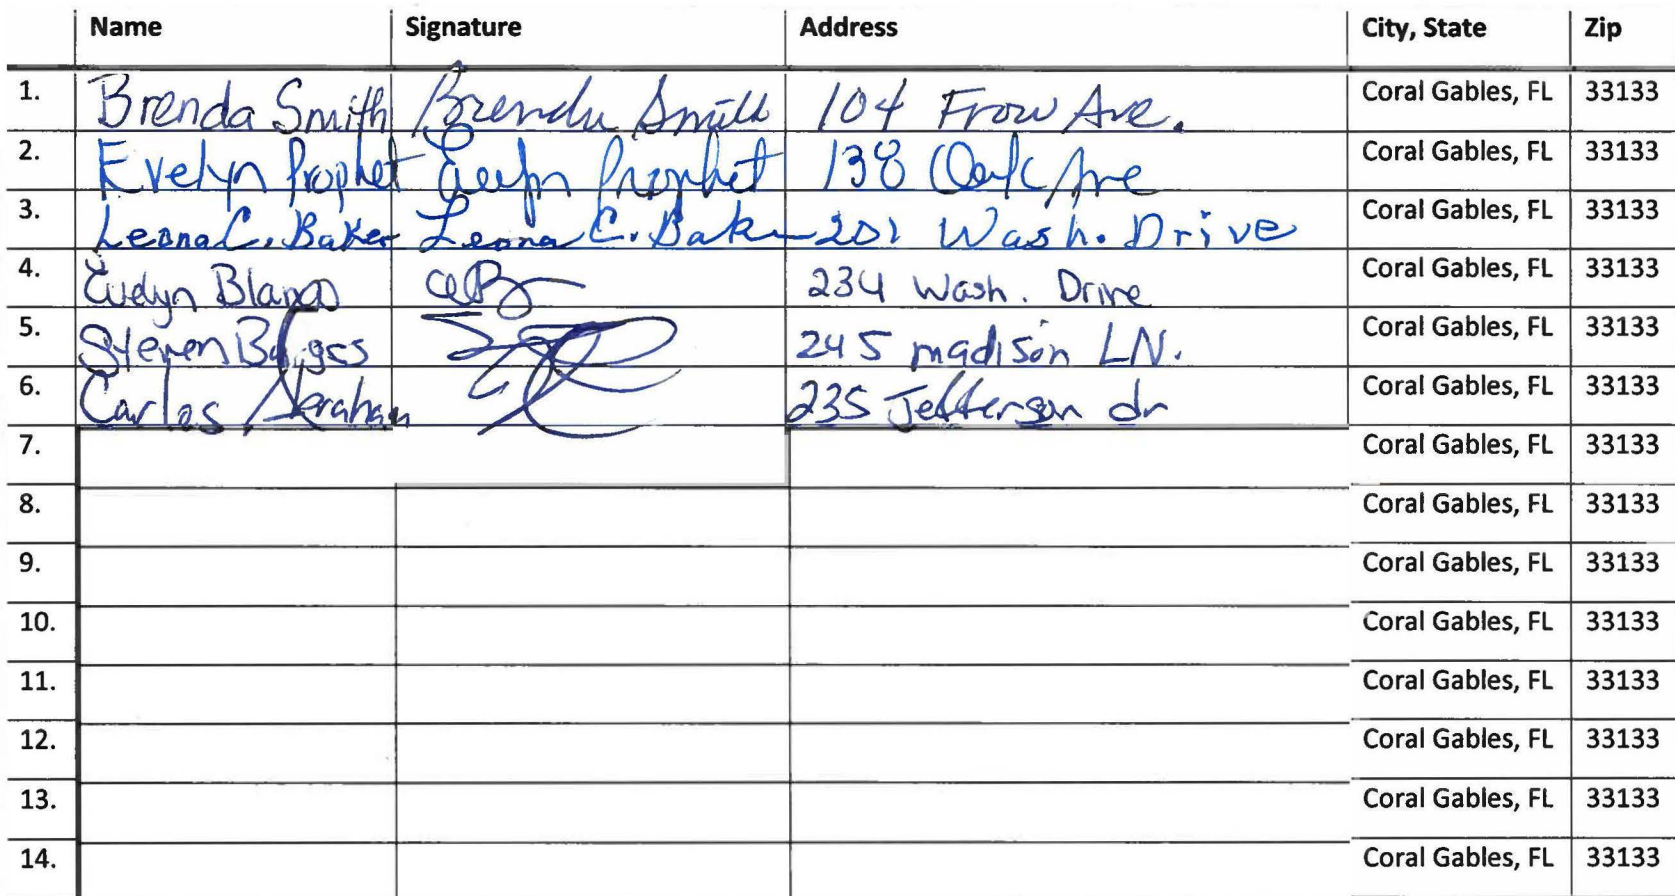 Name Signature Address City, State Zip
1. Brenda Smith Brenda Smith 104 Frow Ave. Coral Gables, FL 33133
2. Evelyn Prophet Evelyn Prophet 138 Oak Ave Coral Gables, FL 33133
3. Leona C. Baker Leona C. Baker 201 Wash. Drive Coral Gables, FL 33133
4. Evelyn Blanco 234 Wash. Drive Coral Gables, FL 33133
5. Steven 245 madison LN. Coral Gables, FL 33133
6. Carlos Abraham 235 Jefferson dr Coral Gables, FL 33133
7. Coral Gables, FL 33133
8. Coral Gables, FL 33133
9. Coral Gables, FL 33133
10. Coral Gables, FL 33133
11. Coral Gables, FL 33133
12. Coral Gables, FL 33133
13. Coral Gables, FL 33133
14. Coral Gables, FL 33133